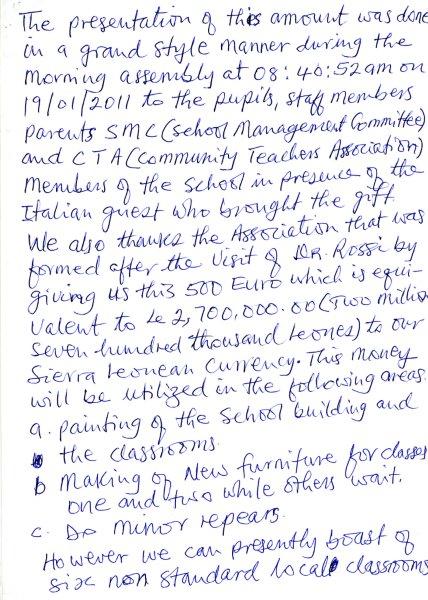 The presentation of this amount was done
in a grand style manner during the
morning assembly at 08:40:52am on
19/01/2011 to the pupils, staff members
Parents SMC (School Management Committee)
and CTA (Community Teachers Association)
members of the school in presence of the
Italian guest who brought the gift.
We also thanks the Association that was
formed after the visit of DR. Rossi by
giving us this 500 Euro which is equi-
valent to Le 2,700,000.00 (Two millio
seven hundred thousand leones) to our
Sierra leonean currency. This money
will be utilized in the following areas.
a. painting of the School building and
the classrooms.
b Making of New furniture for classes
one and two while others wait.
c. Do minor repears.
However we can presently boast of
six non standard local classrooms